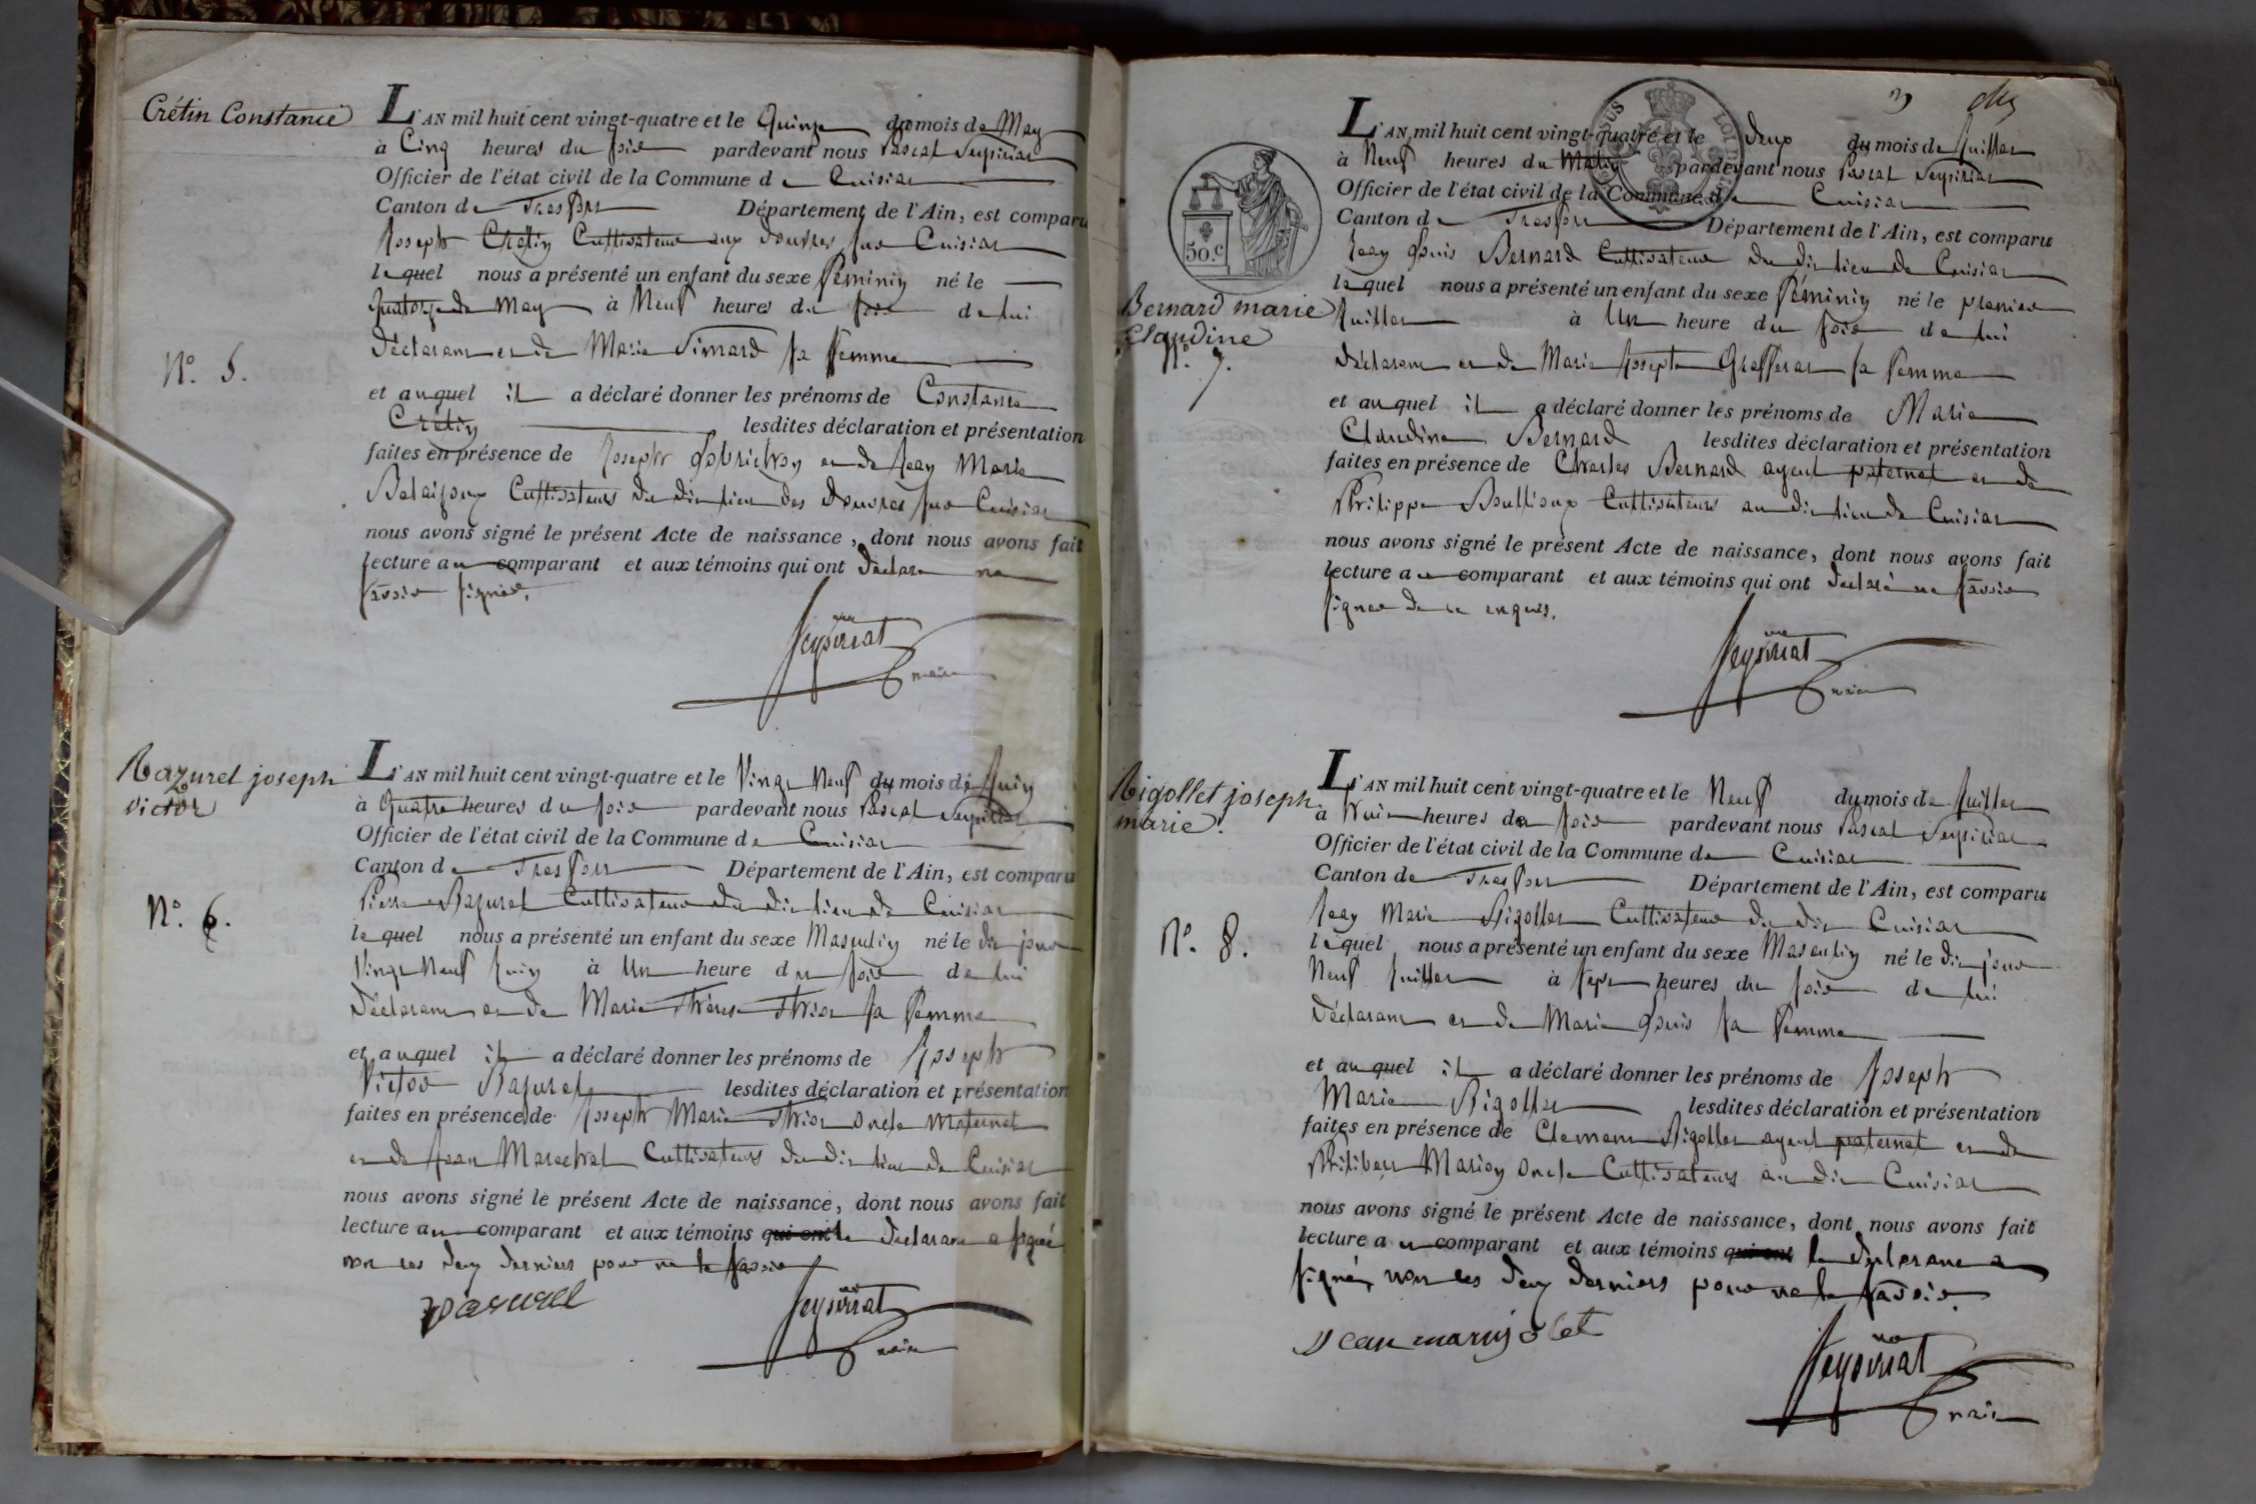 Crétin Constance
N.o 5.
L'AN mil huit cent vingt-quatre et le Quinze du mois de May
à Cinq heures du soir pardevant nous Pascal Seyssiriat
Officier de l'état civil de la Commune de Cuisiat
Canton de Treffort Département de l'Ain, est comparu
Joseph Cretin Cultivateur aux douvres sur Cuisiat
lequel nous a présenté un enfant du sexe féminin né le
quatorze de May à Neuf heures du soir de lui
déclarant et de Marie Simard sa femme
et auquel il a déclaré donner les prénoms de Constance
Cretin lesdites déclaration et présentation
faites en présence de Joseph et de Jean Marie
Cultivateurs du dit lieu des douvres sur Cuisiat
nous avons signé le présent Acte de naissance, dont nous avons fait
lecture au comparant et aux témoins qui ont déclaré ne
savoir signer.
maire
Razurel joseph
victor
N.o 6.
L'AN mil huit cent vingt-quatre et le Vingt Neuf du mois de Juin
à Quatre heures du soir pardevant nous Pascal Seyssiriat
Officier de l'état civil de la Commune de Cuisiat
Canton de Treffort Département de l'Ain, est comparu
Pierre Razurel Cultivateur du dit lieu de Cuisiat
lequel nous a présenté un enfant du sexe Masculin né le dit jour
Vingt Neuf Juin à Un heure du soir de lui
déclarant et de Marie Thérèse sa femme
et auquel il a déclaré donner les prénoms de Joseph
Victor Razurel lesdites déclaration et présentation
faites en présence de Joseph Marie oncle Maternel
et de Jean Marechal Cultivateurs du dit lieu de Cuisiat
nous avons signé le présent Acte de naissance, dont nous avons fait
lecture au comparant et aux témoins qui ont le déclarant a signé
non les deux derniers pour ne le savoir
maire
3
50.C
Bernard marie
Claudine
N.o 7.
L'AN mil huit cent vingt-quatre et le deux du mois de Juillet
à Neuf heures du Matin pardevant nous Pascal Seyssiriat
Officier de l'état civil de la Commune de Cuisiat
Canton de Treffort Département de l'Ain, est comparu
Jean Louis Bernard Cultivateur du dit lieu de Cuisiat
lequel nous a présenté un enfant du sexe féminin né le premier
Juillet à Un heure du soir de lui
déclarant et de Marie Josephte sa femme
et auquel il a déclaré donner les prénoms de Marie
Claudine Bernard lesdites déclaration et présentation
faites en présence de Charles Bernard ayeul paternel et de
Philippe Cultivateurs au dit lieu de Cuisiat
nous avons signé le présent Acte de naissance, dont nous avons fait
lecture au comparant et aux témoins qui ont déclaré ne savoir
signer de ce enquis.
maire
Rigollet joseph
marie.
N.o 8.
L'AN mil huit cent vingt-quatre et le Neuf du mois de Juillet
à huit heures du soir pardevant nous Pascal Seyssiriat
Officier de l'état civil de la Commune de Cuisiat
Canton de Treffort Département de l'Ain, est comparu
Jean Marie Rigollet Cultivateur du dit Cuisiat
lequel nous a présenté un enfant du sexe Masculin né le dit jour
Neuf Juillet à sept heures du soir de lui
déclarant et de Marie Louis sa femme
et auquel il a déclaré donner les prénoms de Joseph
Marie Rigollet lesdites déclaration et présentation
faites en présence de Clement Rigollet ayeul paternel et de
Philibert Marion oncle Cultivateurs au dit Cuisiat
nous avons signé le présent Acte de naissance, dont nous avons fait
lecture au comparant et aux témoins qui ont le déclarant a
signé, non les deux derniers pour ne le savoir.
maire